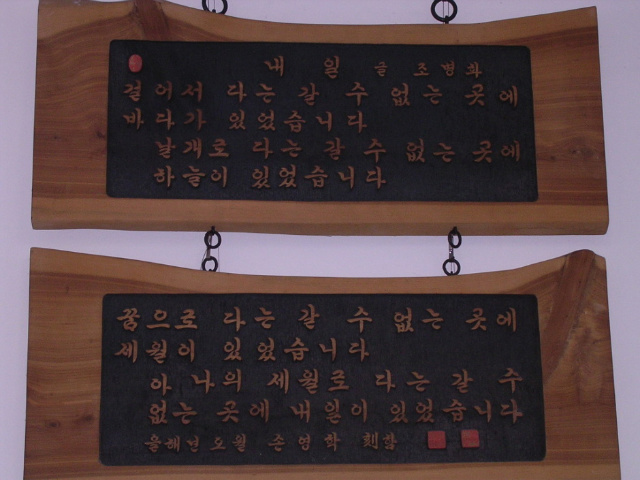 내 일 글 조병화
걸어서 다는 갈 수 없는 곳에
바다가 있었습니다
날개로 다는 갈 수 없는 곳에
하늘이 있었습니다
꿈으로 다는 갈 수 없는 곳에
세월이 있었습니다
아 나의 세월로 다는 갈 수
없는 곳에 내일이 있었습니다
을해년 오월 존영학